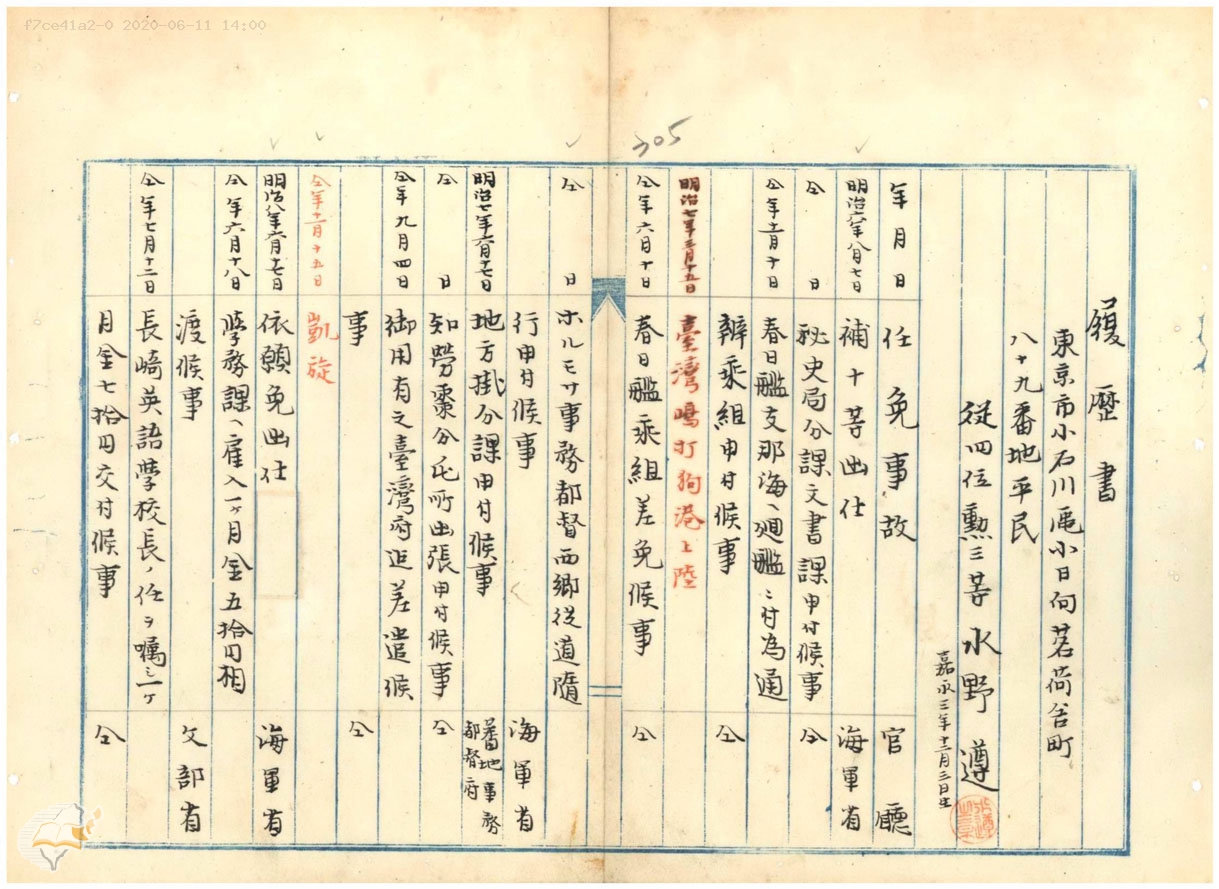 f7ce41a2-0 2020-06-11 14:00
305
履歴書
東京市小石川區小日向茗荷谷町
八十九番地平民
従四位勲三等 水野遵
嘉永三年十二月三日生
年月日 任免事故 官廳
明治六年八月七日 補十等出仕 海軍省
仝 日 秘史局分課文書課申付候事 仝
仝年十二月十日 春日艦支那海ヘ廻艦ニ付為通
辨乘組申付候事 仝
明治七年三月十五日 臺灣嶋打狗港上陸
仝年六月十日 春日艦乘組差免候事 仝
仝 日 ホルモサ事務都督西郷従道隨
行申付候事 海軍省
明治七年六月十七日 地方掛分課申付候事 蕃地事務都督府
仝 日 知勞棗分屯所出張申付候事 仝
仝年九月四日 御用有之臺灣府迄差遣候
事 仝
仝年十二月十五日 凱旋
明治八年六月十七日 依願免出仕 海軍省
仝年六月十八日 學務課ヘ雇入一ヶ月金五拾円相
渡候事 文部省
仝年七月十二日 長崎英語學校長ノ任ヲ嘱シ一ヶ
月金七拾円交付候事 仝